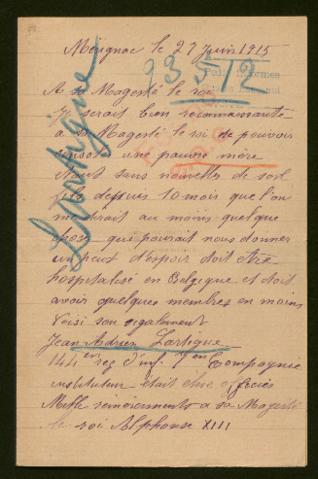 Mérignac le 27 Juin 1915
93512
A sa Magesté le roi
Je serait bien recommandante
a sa Magesté le roi de pouvoir
consoler une pauvre mère
étant sans nouvelle de sont
fils depuis 10 mois que l'on
me dirait au moins quelque
chose qui pourait nous donner
un peut d'espoir doit être
hospitalisé en Belgique et doit
avoir quelques membres en moins
Voisi son signalement
Jean Adrien Lartigue
144 en reg d'inf. 7 en Compagnie
instituteur était élève officiés
Mille remerciements a sa Magesté
le roi Alphonse XIII
Lartigue